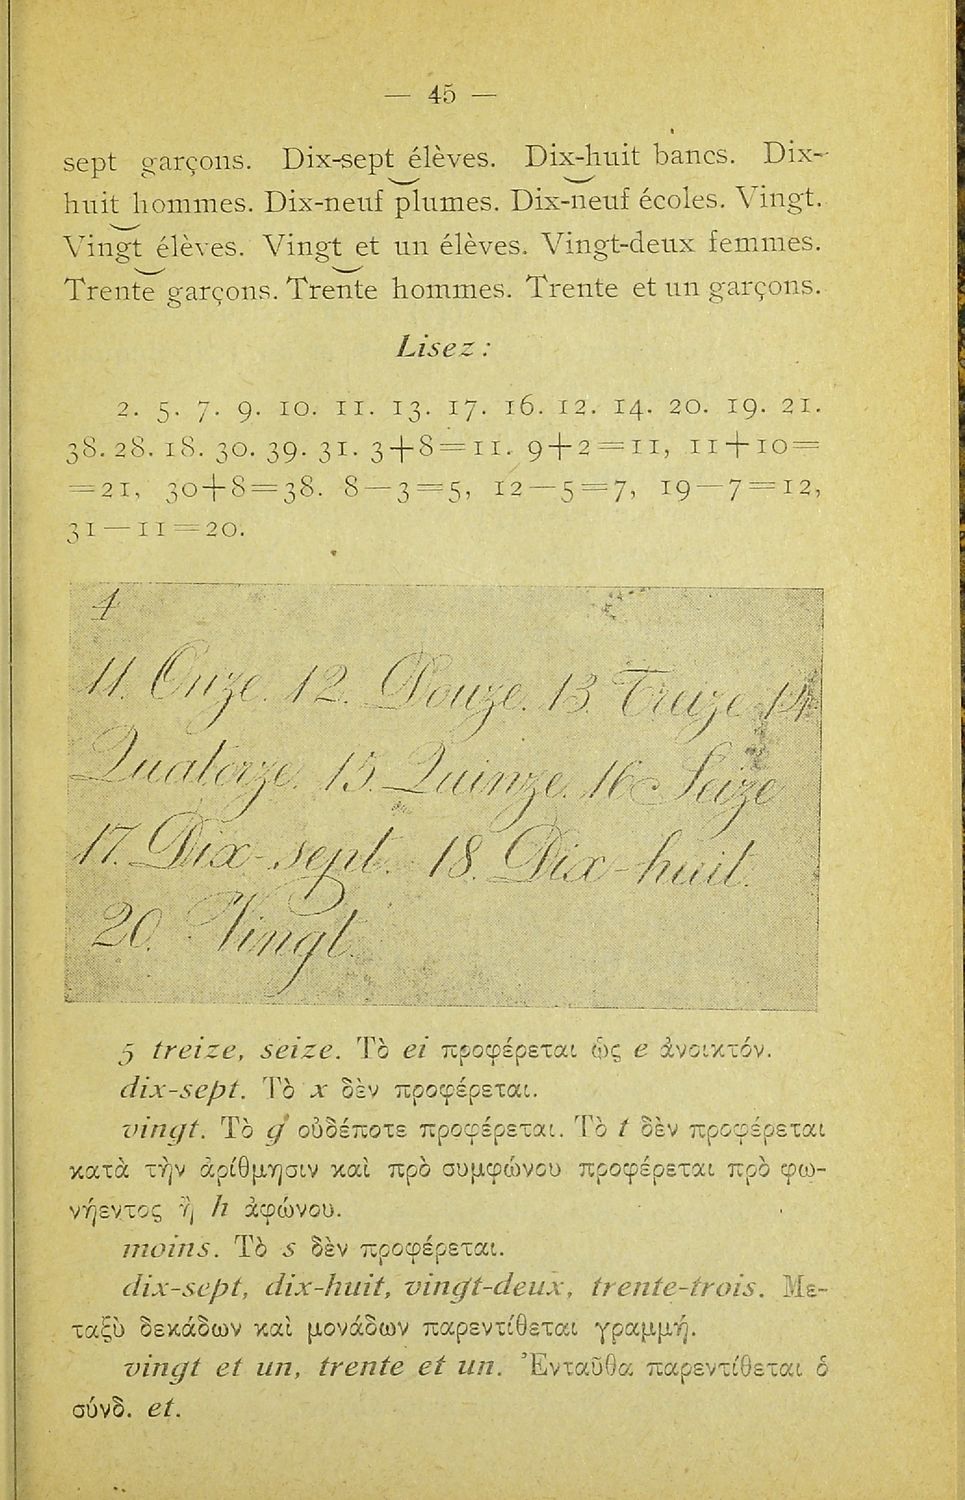 — 45 —
sept garçons. Dix-sept élèves. Dix-huit bancs. Dix-
huit hommes. Dix-neuf plumes. Dix-neuf écoles. Vingt.
Vingt élèves. Vingt et un élèves. Vingt-deux femmes.
Trente garçons. Trente hommes. Trente et un garçons.
Lisez :
2. 5. 7. 9. 10. 11. 13. 17. 16. 12. 14. 20. 19. 21.
38. 28. 18. 30. 39. 31. 3+8=11. 9+2=11, 11+10=
=21, 30+8=38. 8—3=5, 12—5=7, 19—7=12,
31—11=20.
4
11. Onze. 12. Douze. 13. Treize 14
Quatorze. 15. Quinze. 16 Seize
17. Dix-sept. 18. Dix-huit.
20. Vingt.
5 treize, seize. Τὸ ei προφέρεται ὡς e ἀνοικτόν.
dix-sept. Τὸ x δὲν προφέρεται.
vingt. Τὸ g οὐδέποτε προφέρεται. Τὸ t δὲν προφέρεται
κατὰ τὴν ἀρίθμησιν καὶ πρὸ συμφώνου προφέρεται πρὸ φω-
νήεντος ἢ h ἀφώνου.
moins. Τὸ s δὲν προφέρεται.
dix-sept, dix-huit, vingt-deux, trente-trois. Με-
ταξὺ δεκάδων καὶ μονάδων παρεντίθεται γραμμή.
vingt et un, trente et un. Ἐνταῦθα παρεντίθεται ὁ
σύνδ. et.